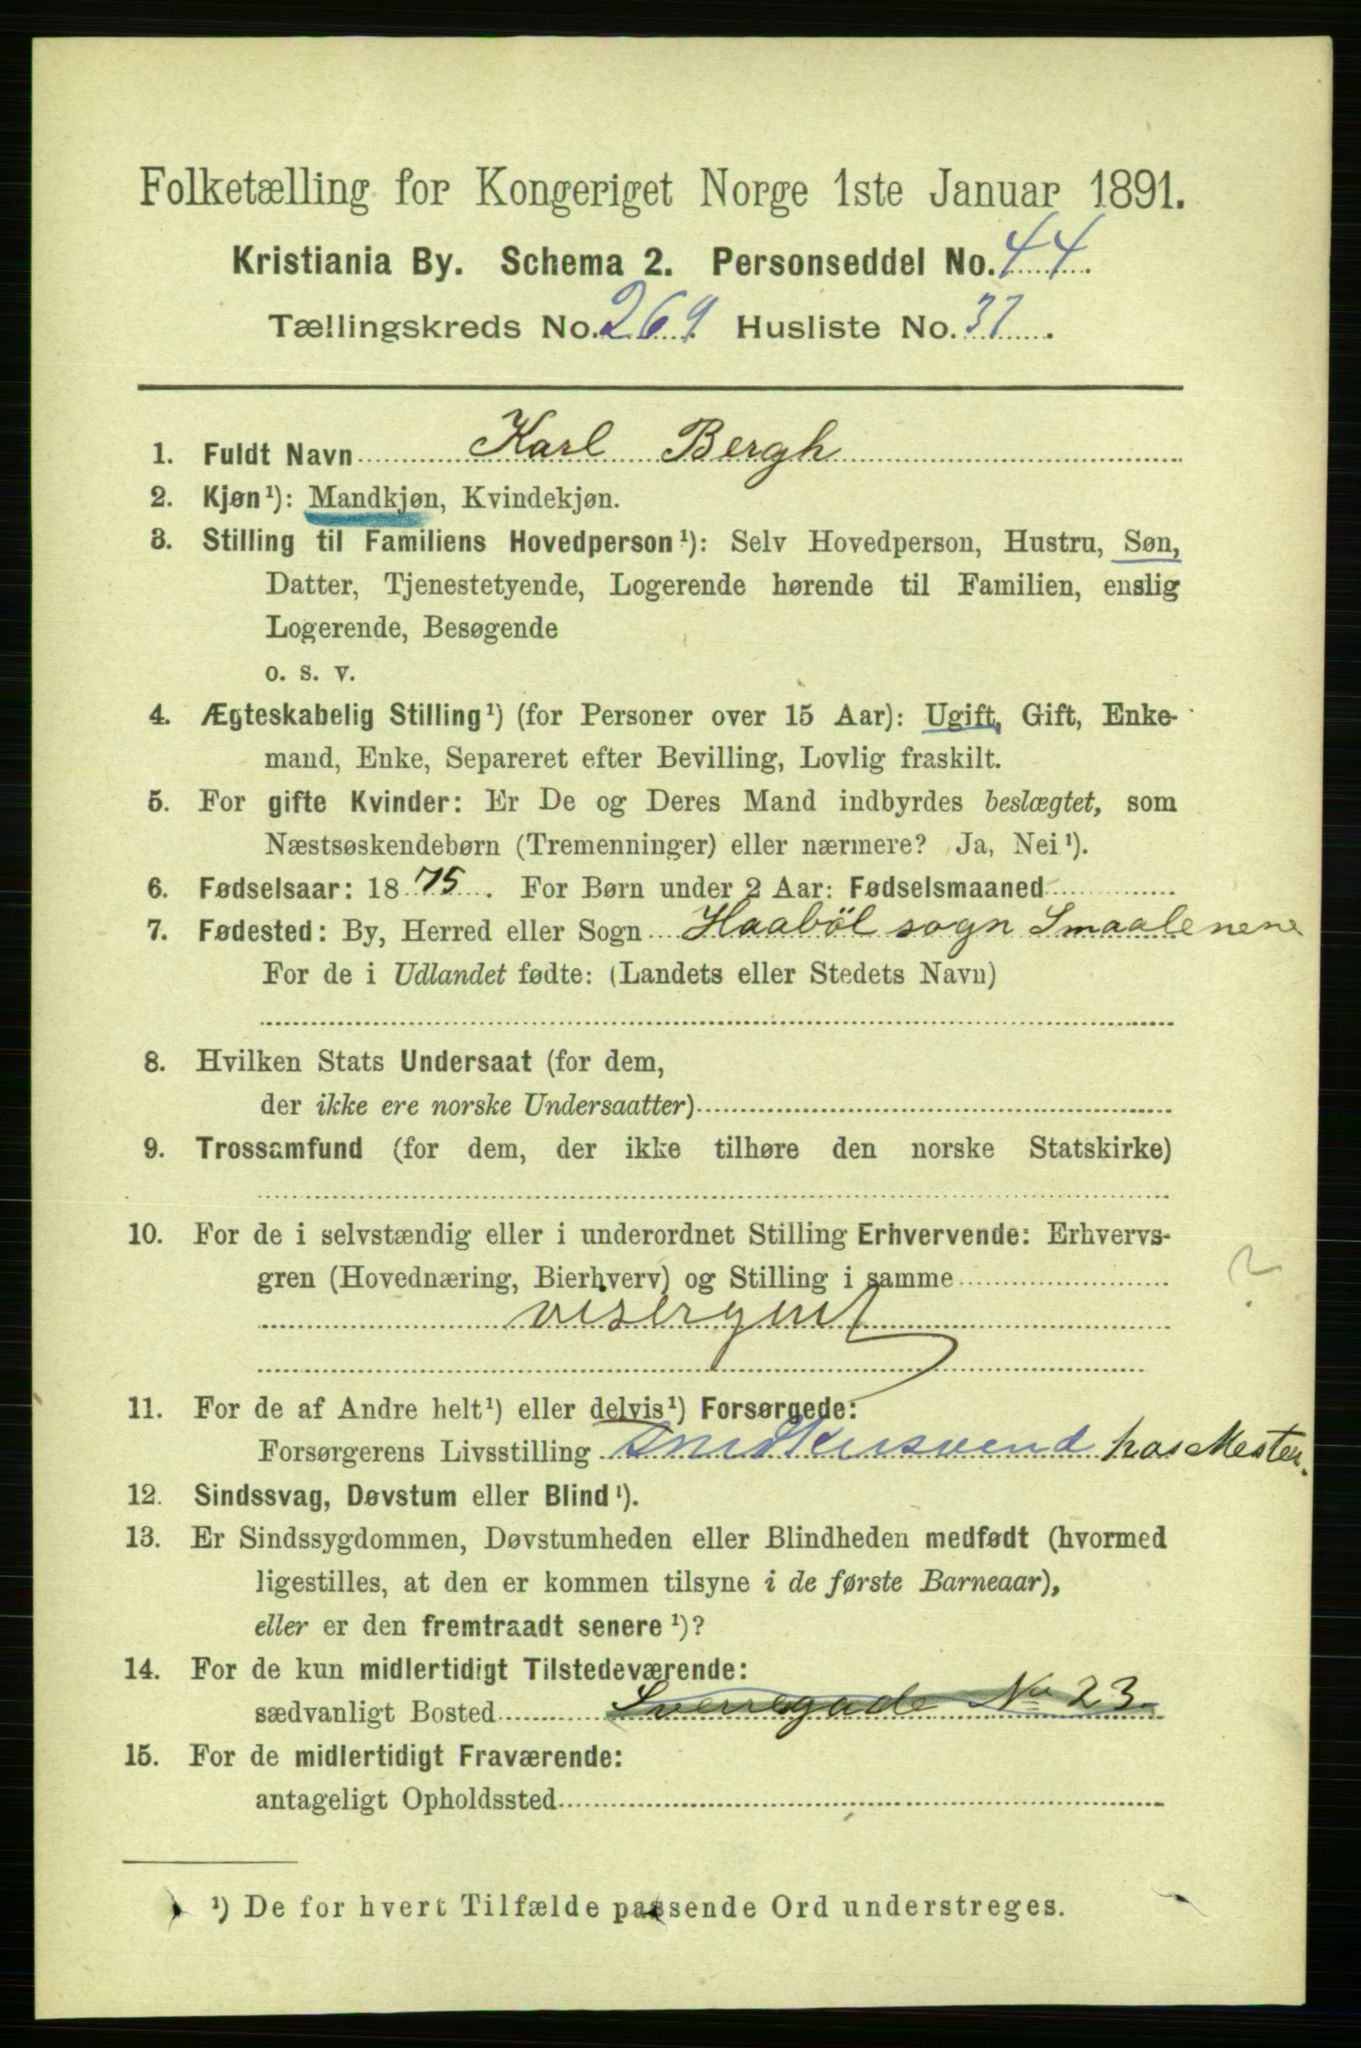 Folketælling for Kongeriget Norge 1ste Januar 1891.
Kristiania By. Schema 2. Personseddel No. 44.
Tællingskreds No. 269. Husliste No. 37.
1. Fuldt Navn Karl Bergh
2. Kjøn¹): Mandkjøn, Kvindekjøn.
3. Stilling til Familiens Hovedperson¹): Selv Hovedperson, Hustru, Søn,
Datter, Tjenestetyende, Logerende hørende til Familien, enslig
Logerende, Besøgende
o. s. v.
4. Ægteskabelig Stilling¹) (for Personer over 15 Aar): Ugift, Gift, Enke-
mand, Enke, Separeret efter Bevilling, Lovlig fraskilt.
5. For gifte Kvinder: Er De og Deres Mand indbyrdes beslægtet, som
Næstsøskendebørn (Tremenninger) eller nærmere? Ja, Nei¹).
6. Fødselsaar: 1875. For Børn under 2 Aar: Fødselsmaaned
7. Fødested: By, Herred eller Sogn Haaböl sogn Smaalenene
For de i Udlandet fødte: (Landets eller Stedets Navn)
8. Hvilken Stats Undersaat (for dem,
der ikke ere norske Undersaatter)
9. Trossamfund (for dem, der ikke tilhøre den norske Statskirke)
10. For de i selvstændig eller i underordnet Stilling Erhvervende: Erhvervs-
gren (Hovednæring, Bierhverv) og Stilling i samme
visergut
11. For de af Andre helt¹) eller delvis¹) Forsørgede:
Forsørgerens Livsstilling Snedkersvend hos Mester.
12. Sindssvag, Døvstum eller Blind¹).
13. Er Sindssygdommen, Døvstumheden eller Blindheden medfødt (hvormed
ligestilles, at den er kommen tilsyne i de første Barneaar),
eller er den fremtraadt senere¹)?
14. For de kun midlertidigt Tilstedeværende:
sædvanligt Bosted Sverregade No 23
15. For de midlertidigt Fraværende:
antageligt Opholdssted
¹) De for hvert Tilfælde passende Ord understreges.